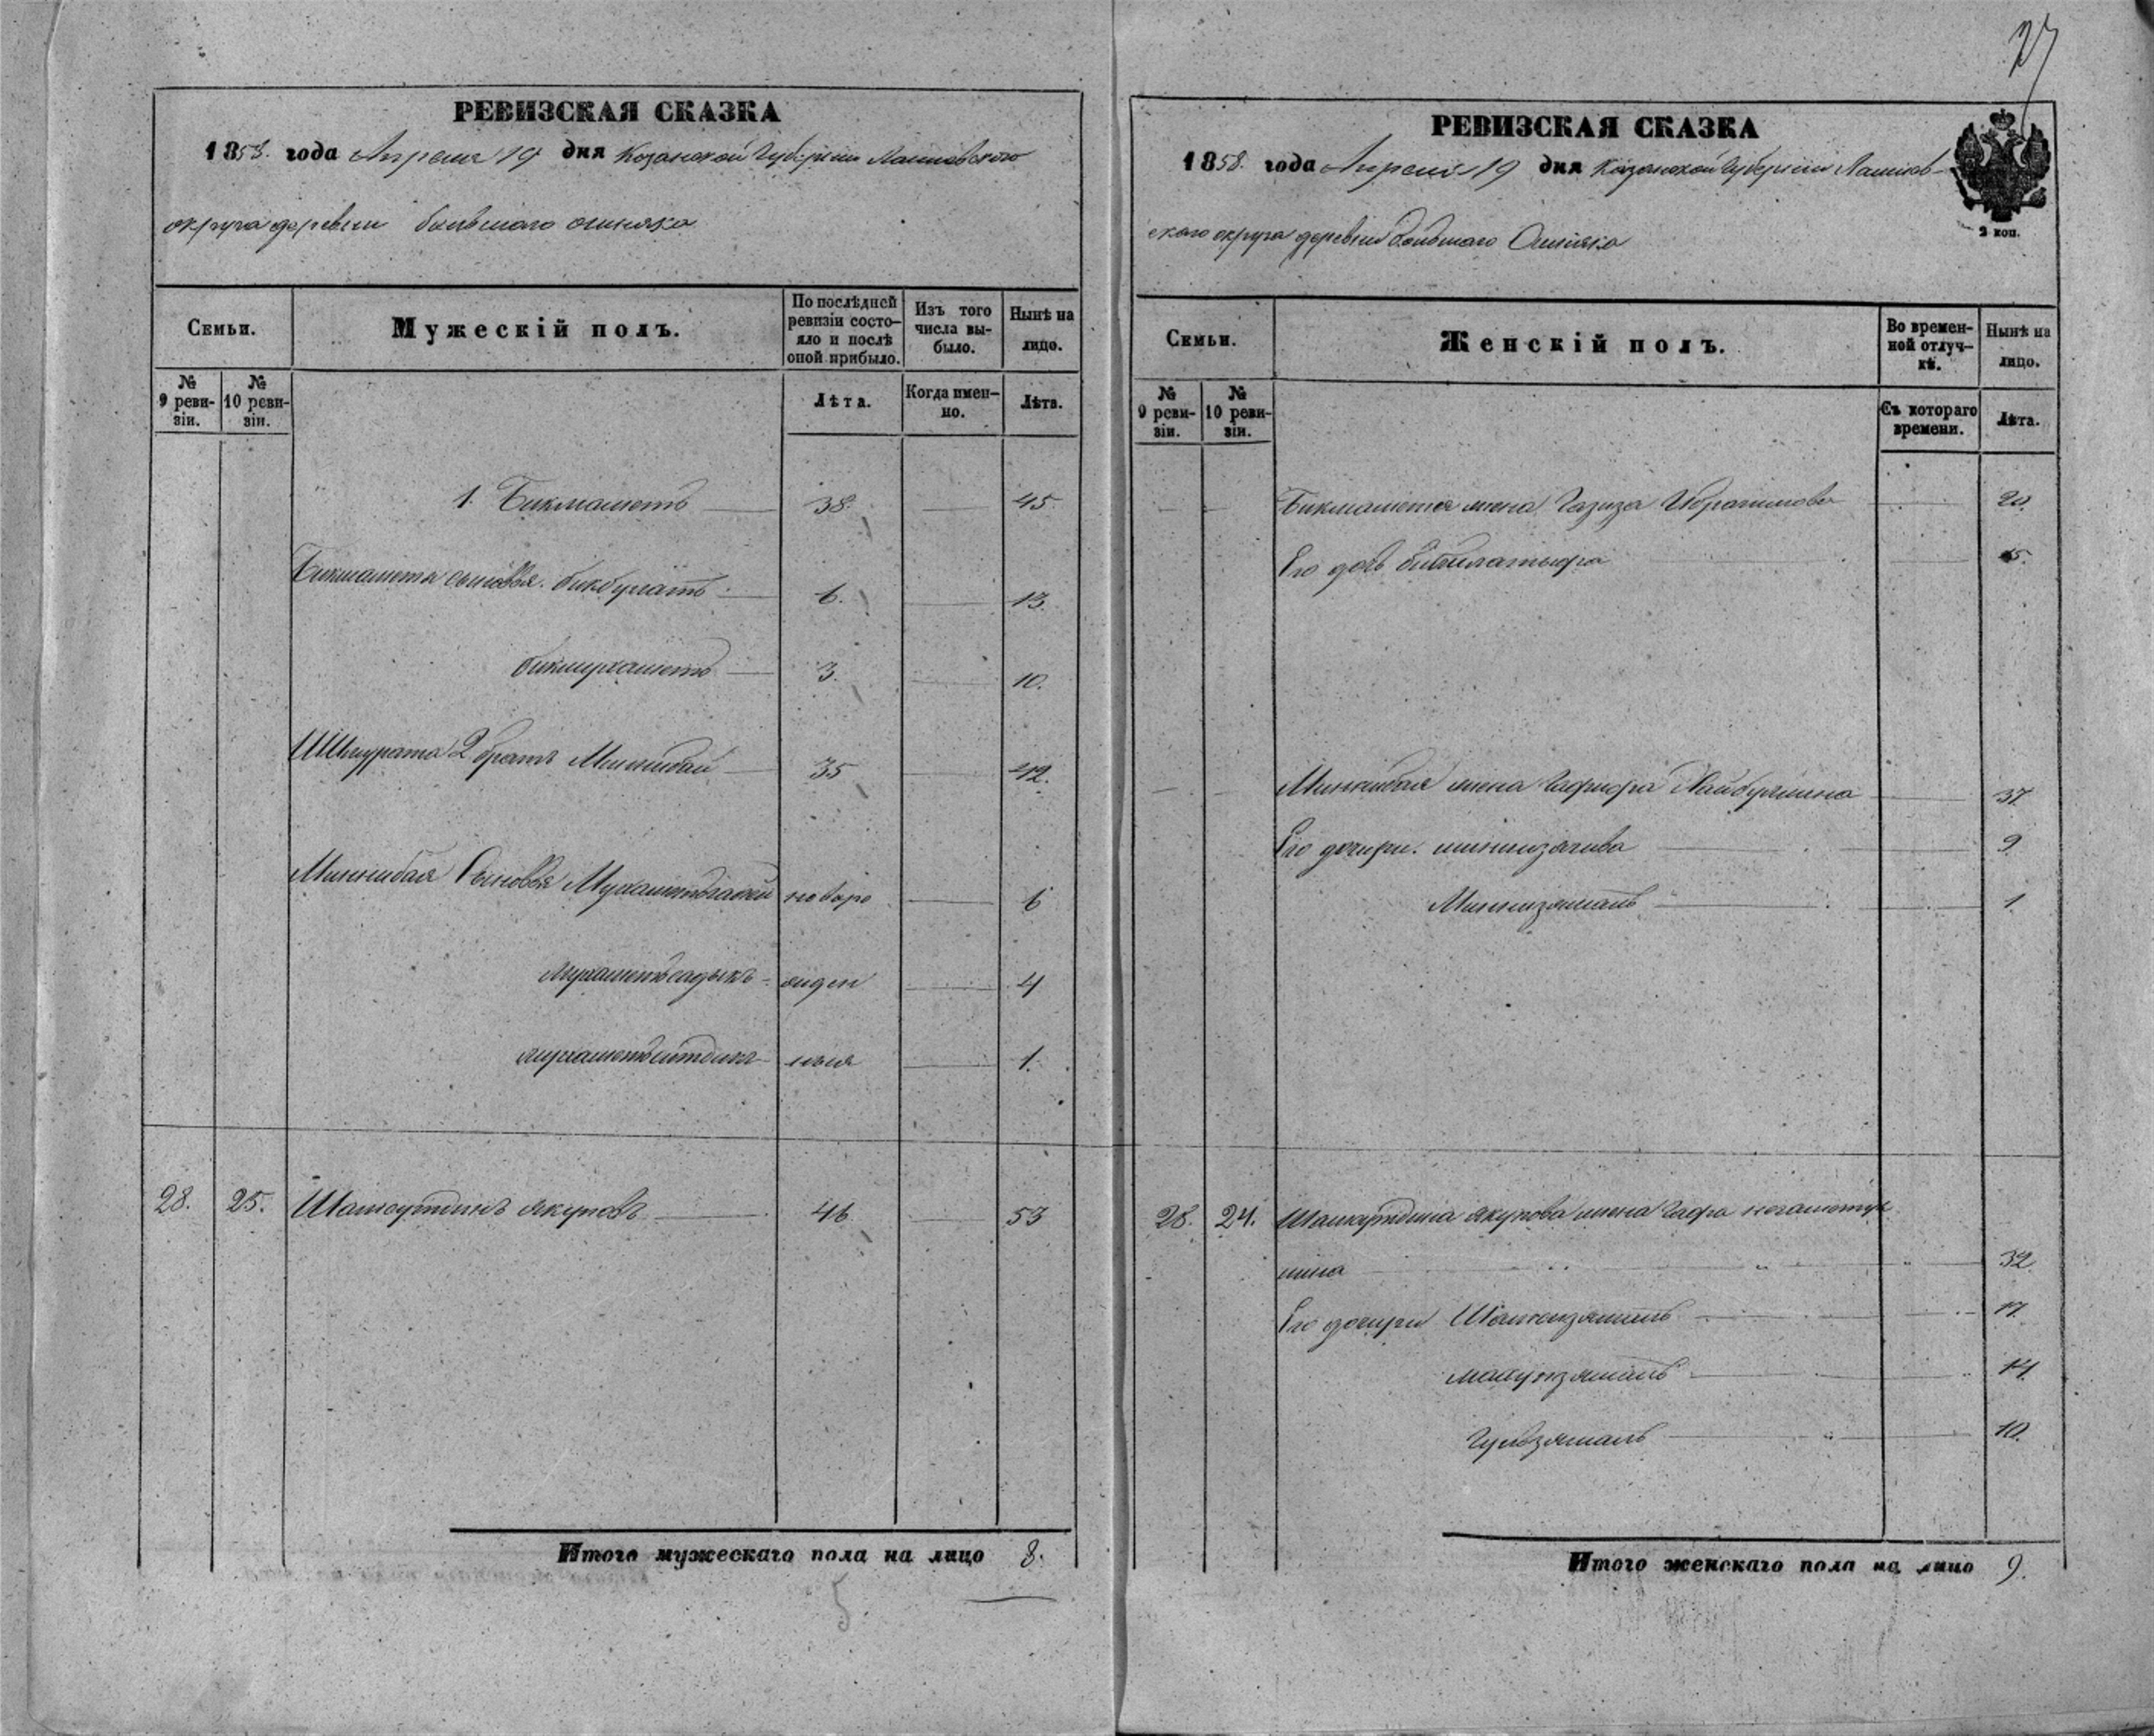 27
РЕВИЗСКАЯ СКАЗКА
1858. года Апреля 19 дня Казанской Губернии Лаишевского
округа деревни большаго ошняка
Семьи.
Мужескій полъ.
По послѣдней ревизіи состояло и послѣ оной прибыло.
Изъ того числа выбыло.
Нынѣ на лицо.
№ 9 ревизіи.
№ 10 ревизіи.
Лѣта.
Когда именно.
Лѣта.
1. Бикмаметъ 38. 45
Бикмамета сыновья. бикбулатъ 6. 13.
бикмухаметъ 3. 10.
2 братъ Миннибай 35 42.
Миннибая Сыновья новоро 6
мухаметьсадыкъ жден 4
ныя 1.
28. 25. якуповъ 46 53
Итого мужескаго пола на лицо 8.
5
РЕВИЗСКАЯ СКАЗКА
1858. года Апреля 19 дня Казанской Губерніи Лаишев-
скаго округа деревни большаго Ошняка
2 коп.
Семьи.
Женскій полъ.
Во временной отлучкѣ.
Нынѣ на лицо.
№ 9 ревизіи.
№ 10 ревизіи.
Съ котораго времени.
Лѣта.
Бикмамета жена Газиза Ибрагимова 20.
Его дочь 5.
Миннибая жена 37
Его дочери. 9
Миннизямаль 1.
28. 24. якупова жена
нина 32.
Его дочери 17.
14.
Гульзямаль 10.
Итого женскаго пола на лицо 9.